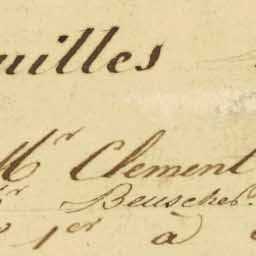 uilles
Mr Clement
r Beuscher
1er à